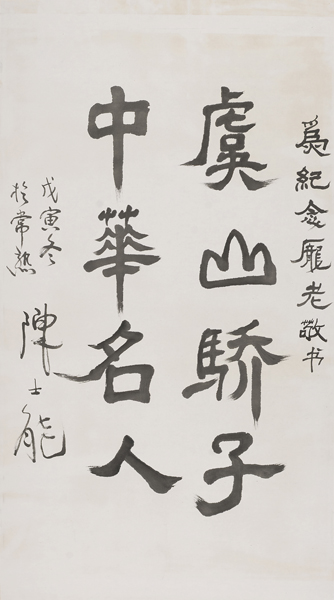 為紀念龐老敬书
虞山驕子
中華名人
戊寅冬
於常熟
陳士能